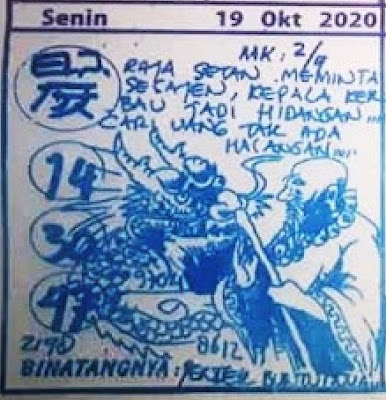 Senin 19 Okt 2020
MK: 2/9
RAJA SETAN MEMINTA
SECAJEN, KEPALA KER
BAU JADI HIDANGAN...
CARI UANG TAK ADA
HALANGAN....
14
30
2190
8612
BINATANGNYA: